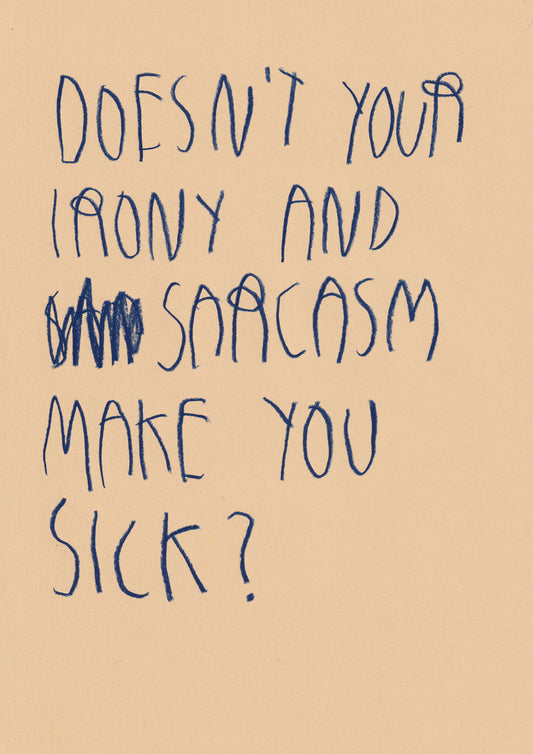 DOESN'T YOUR
IRONY AND
SARCASM
MAKE YOU
SICK?